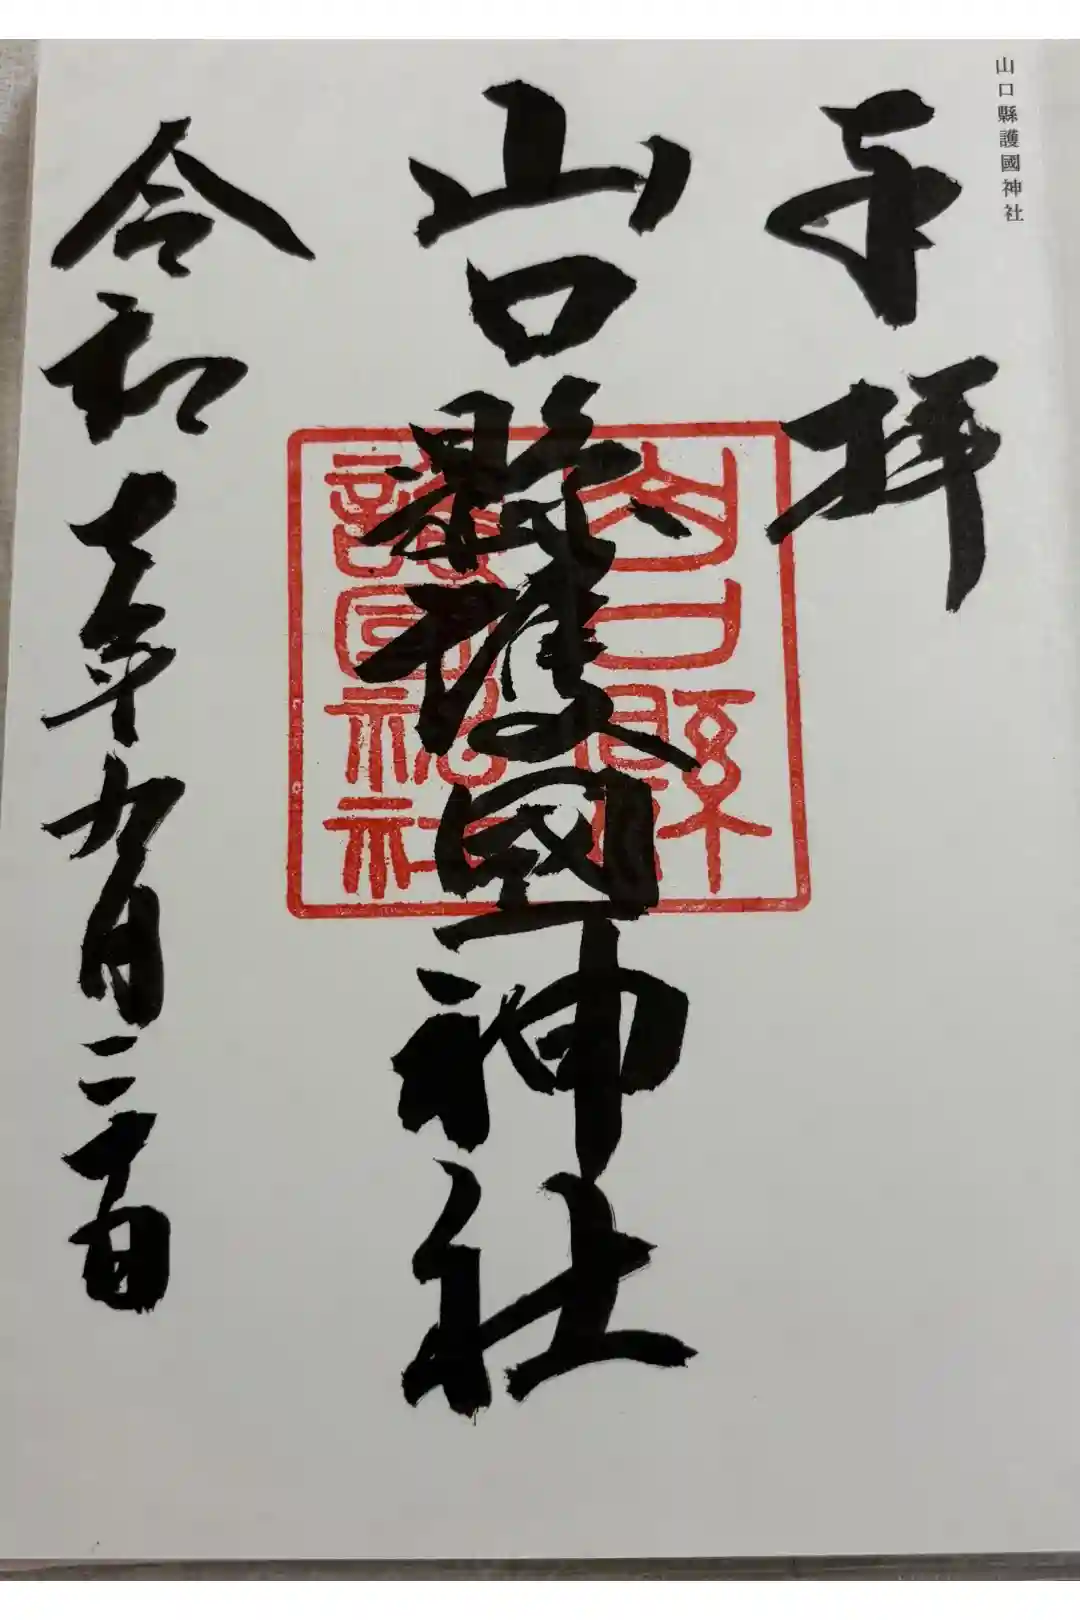 山口縣護國神社
奉拝
山口縣護國神社
山口縣
護国神社
令和七年九月二十日